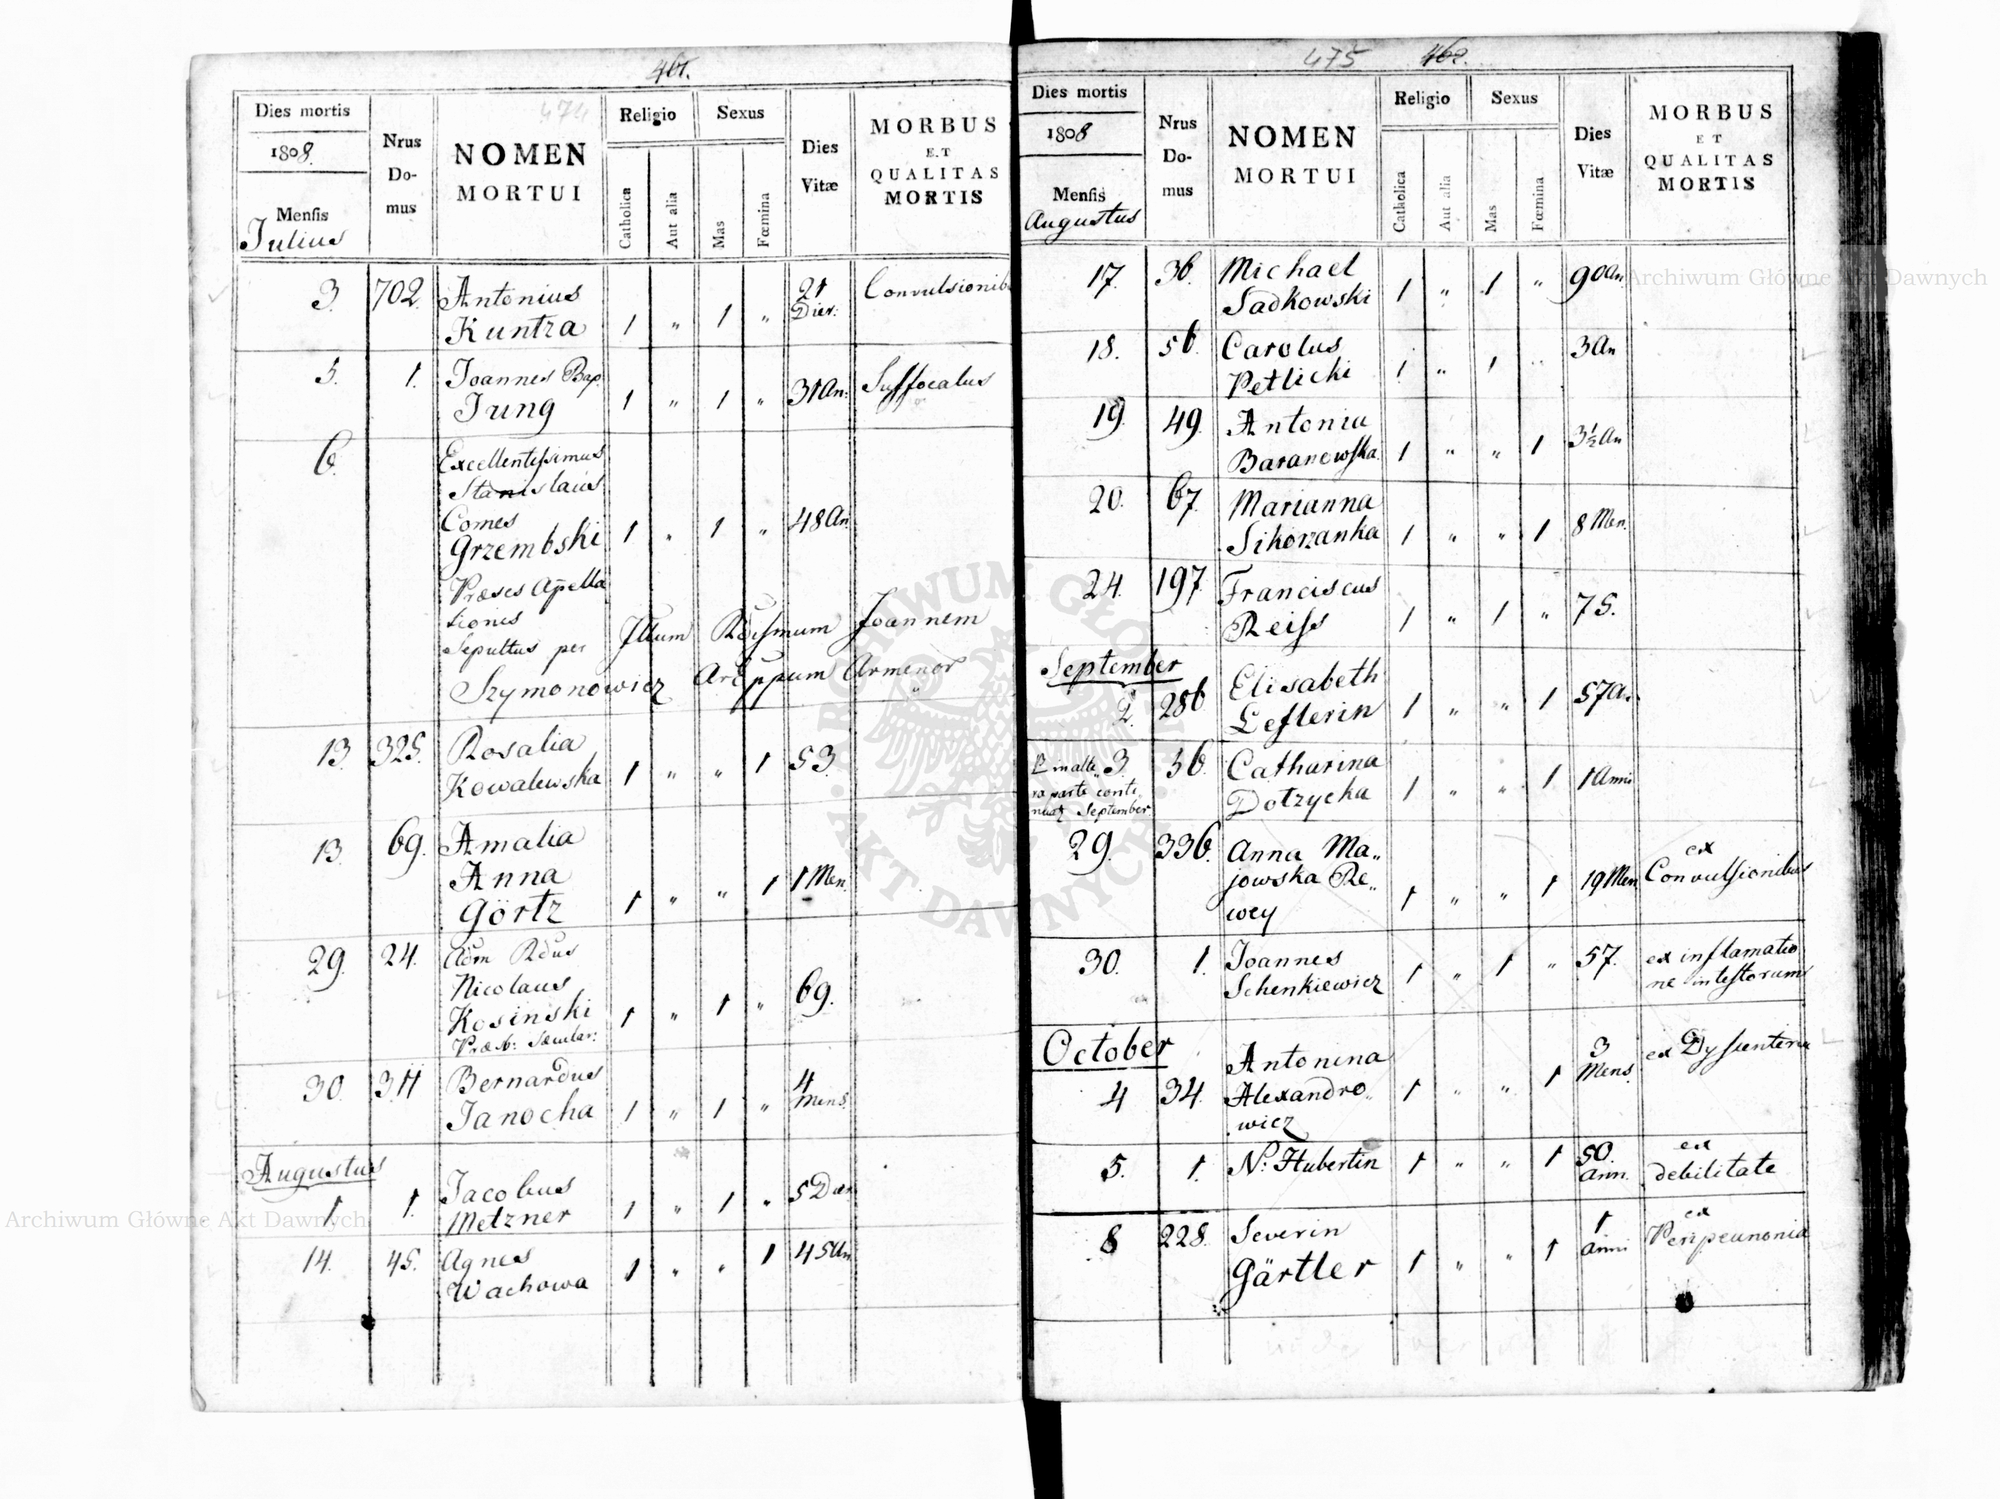 461.
474
Dies mortis
1808.
Mensis
Julius
Nrus
Do-
mus
NOMEN
MORTUI
Religio
Catholica
Aut alia
Sexus
Mas
Fœmina
Dies
Vitæ
MORBUS
ET
QUALITAS
MORTIS
3. 702. Antonius 21 Convulsionib
Kuntza 1 " 1 " Dier:
5. 1. Joannes Bap. Suffocatus
Jung 1 " 1 " 31 An:
6. Excellentissimus
Stanislaus
Comes
Grzembski 1 " 1 " 48 An.
Præses Apella
tionis
Sepultus per Illum Rdissmum Joannem
Szymonowicz Areppum Armenor
13. 325. Rosalia
Kowalewska 1 " " 1 53.
13. 69. Amalia
Anna 1 " " 1 1 Men.
Görtz
29. 24. Adm Rdus
Nicolaus
Kosinski 1 " 1 " 69.
Præsb: Sæcular:
30. 311 Bernardus 4
Janocha 1 " 1 " Mens.
Augustus
1 1. Jacobus
Metzner 1 " 1 " 5 Dier
14. 45. Agnes
Wachowa 1 " " 1 45 An
475 462.
Dies mortis
1808
Mensis
Augustus
Nrus
Do-
mus
NOMEN
MORTUI
Religio
Catholica
Aut alia
Sexus
Mas
Fœmina
Dies
Vitæ
MORBUS
ET
QUALITAS
MORTIS
17. 36. Michael
Sadkowski 1 " 1 " 90 An.
18. 56. Carolus
Petlicki 1 " 1 " 3 An
19. 49. Antonia
Baranowska. 1 " " 1 3½ An
20. 67. Marianna
Sikorzanka 1 " " 1 8 Men.
24. 197. Franciscus
Reiss 1 " 1 " 75.
September
2. 286. Elisabeth
Leflerin 1 " " 1 57 An.
3. 36. Catharina
Dotzycka 1 " " 1 1 Anni
in alte
ra parte conti
nuatz September
29. 336. Anna Ma„ ex
jowska Re„ 1 " " 1 19 Men Convulsionibus
wey
30. 1. Joannes ex inflamatio
Schenkiewicz 1 " 1 " 57. ne intestorum
October
4 34. Antonina 3 ex Dysenteria
Alexandro„ 1 " " 1 Mens.
wicz
5. 1. N: Hubertin 1 " " 1 50. ex
Ann. debilitate
8 228. Severin 1 ex
Gärtler 1 " " 1 Anni Peripeunonia
Archiwum Główne Akt Dawnych
Archiwum Główne Akt Dawnych
ARCHIWUM GŁÓWNE
AKT DAWNYCH